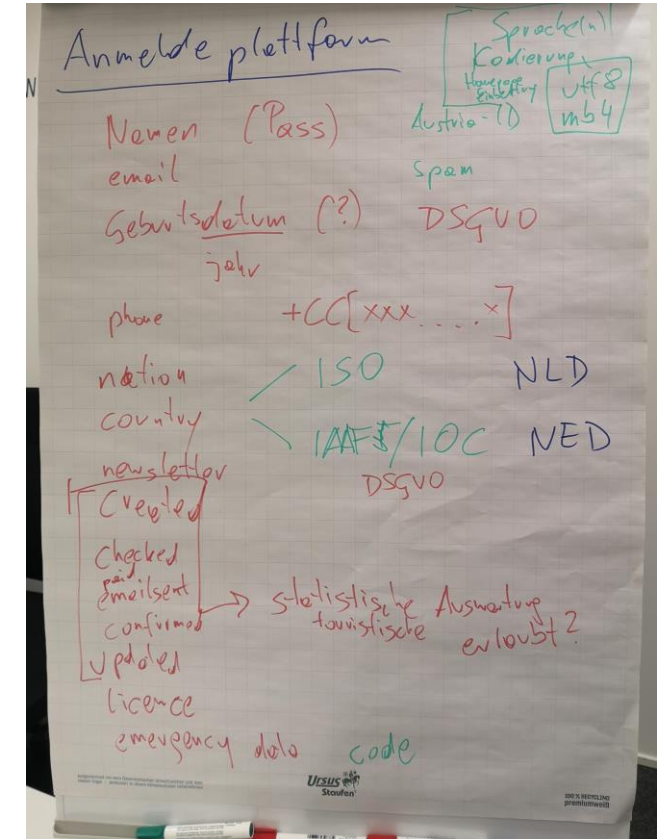 Anmeldeplattform
Sprache(n)
Kodierung
Homepage
Einbettung
utf8
mb4
Austria-ID
Namen (Pass)
email
Spam
Geburtsdatum (?) DSGVO
jahr
phone +CC[xxx....x]
nation ISO NLD
country IAAF/IOC NED
newsletter DSGVO
Created
Checked
paid
emailsent
confirmed
statistische Auswertung
touristische erlaubt?
Updated
licence
emergency data code
Ursus
Staufen
100% RECYCLING
premiumweiß